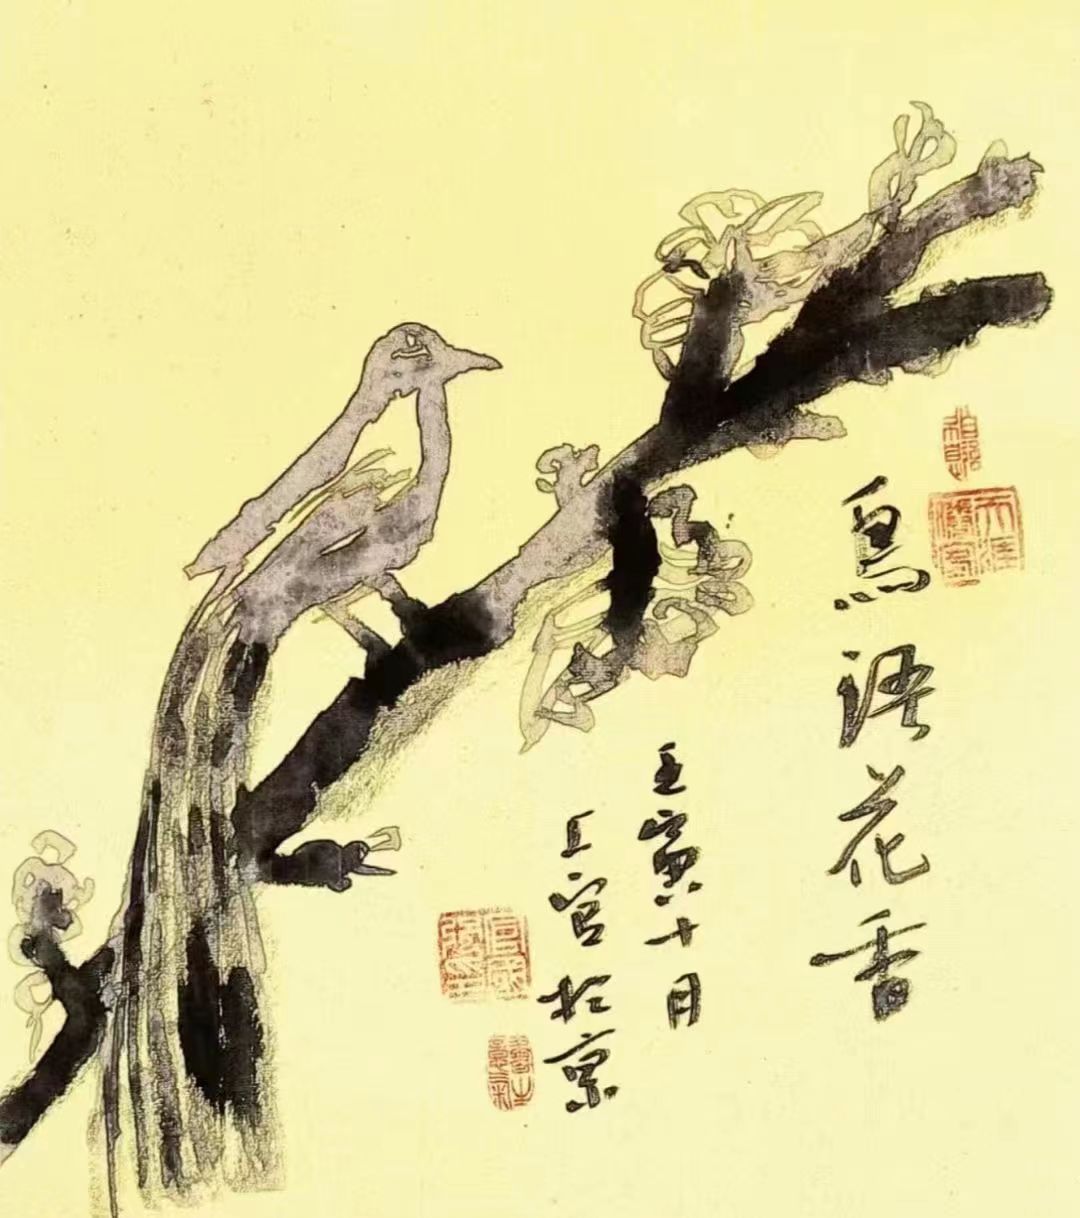 鳥語花香
壬寅十月
上官於京